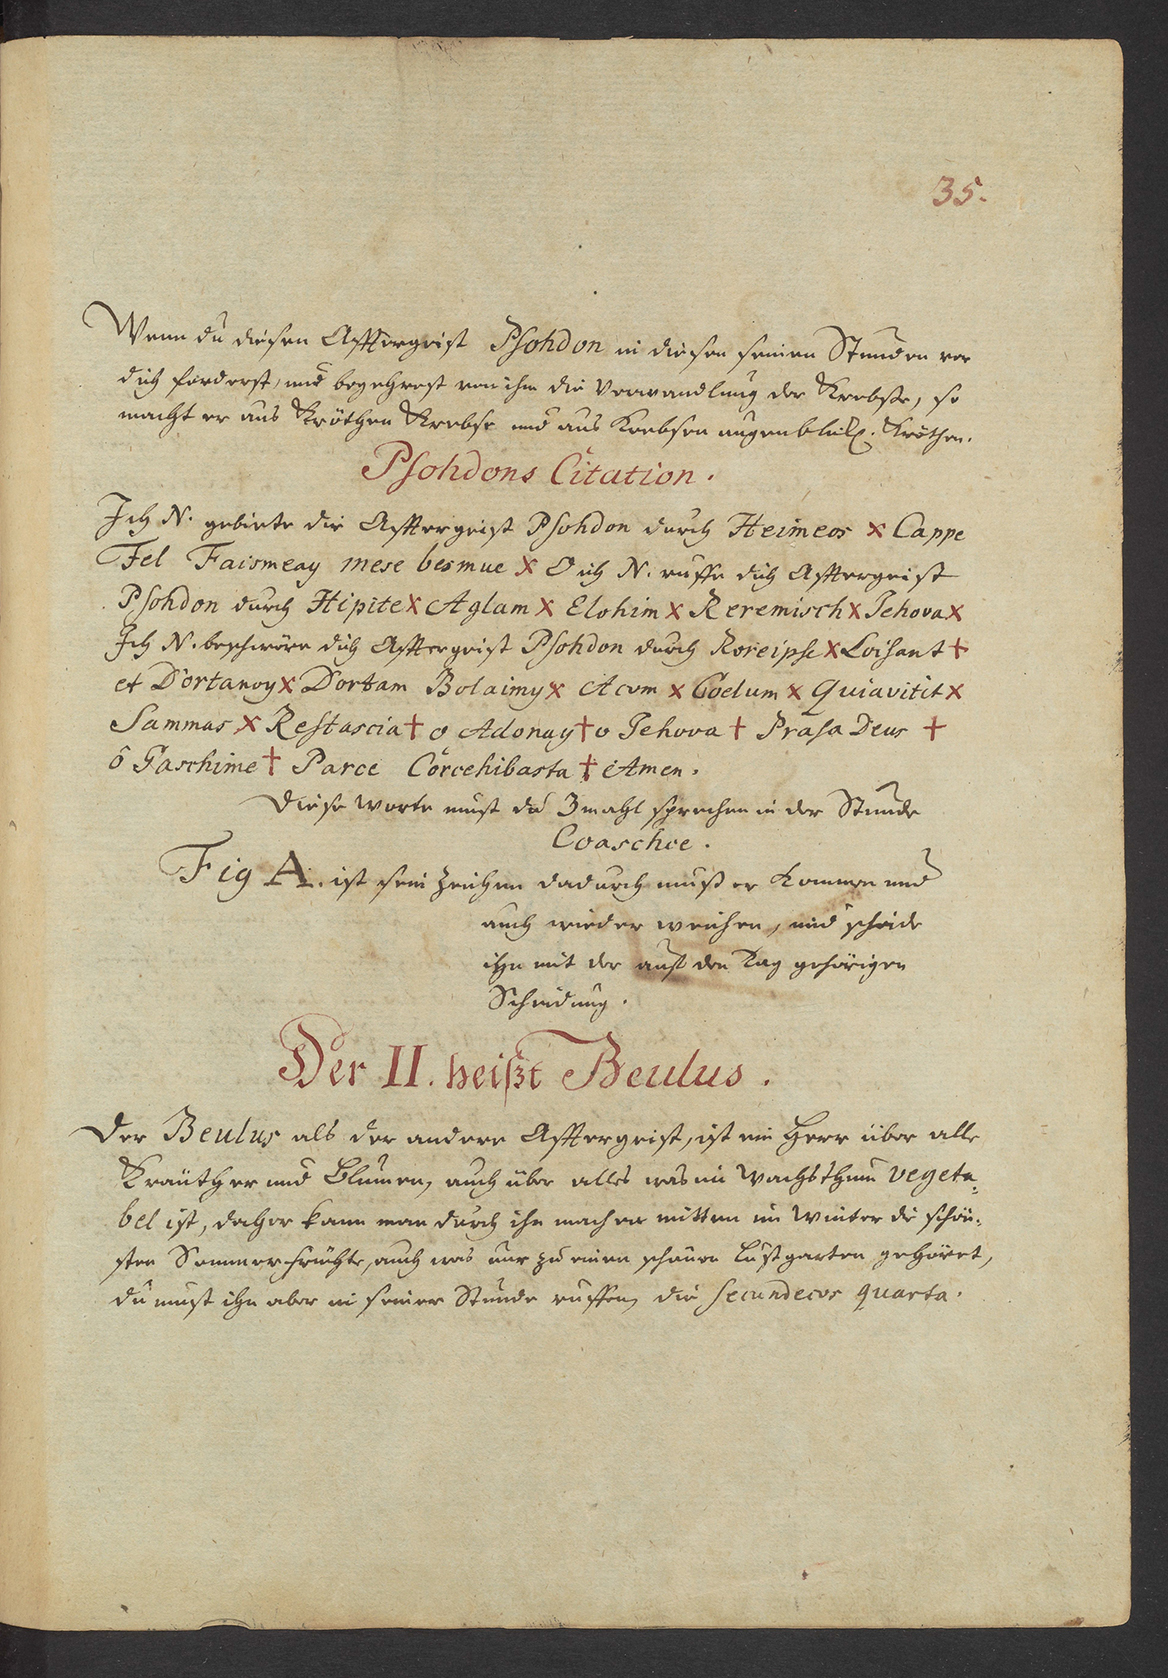 35.
Wenn du diesen Afftergeist Psohdon in diesen seinen Stunden vor
dich forderst, und begehrest von ihm die Verwandlung der Krebse, so
macht er aus Kröthen Krebse und aus Krebsen augenblikl. Kröthen.
Psohdons Citation.
Ich N. gebiete dir Afftergeist Psohdon durch Heimeos x Cappe
Fel Faismeay mese besmue x O ich N. ruffe dich Afftergeist
Psohdon durch Hipite x Aglam x Elohim x Reremisch x Jehova x
Ich N. beschwöre dich Afftergeist Psohdon durch Roreipse x Loisant +
et Dortanoy x Dortam Bolaimy x Acom x Coelum x Quiavitit x
Sammas x Restascia + o Adonay + o Jehova + Prasa Deus +
ô Jaschime + Parce Corcehibasta + Amen.
Diese Worte must du 3 mahl sprechen in der Stunde
Coaschoe.
Fig A. ist sein Zeichen dadurch muß er kommen und
auch wieder weichen, und scheide
ihn mit der auf den Tag gehörigen
Scheidung.
Der II. heißt Beulus.
Der Beulus als der andere Afftergeist, ist ein Herr über alle
Kräuther und Blumen, auch über alles was im Wachsthum vegeta-
bel ist, daher kann man durch ihn machen mitten im Winter die schön-
sten Sommerfrüchte, auch was nur zu einen schönen Lustgarten gehöret,
du must ihn aber in seiner Stunde ruffen, die secundecos quarta.